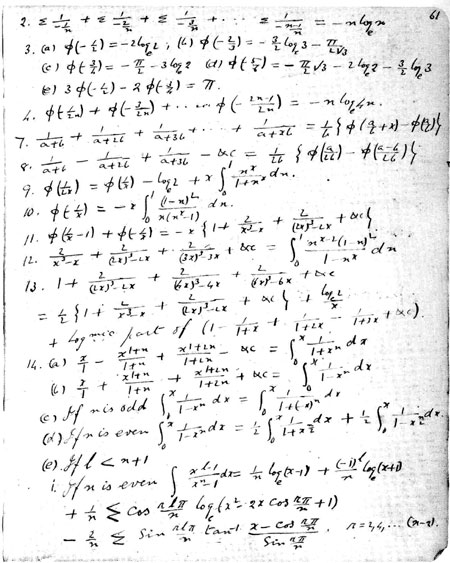 61
2. Σ 1/(-1/n) + Σ 1/(-2/n) + Σ 1/(-3/n) + ... Σ 1/(-(n-1)/n) = -n log_e n
3. (a) φ(-1/2) = -2 log_e 2, (b) φ(-2/3) = -3/2 log_e 3 - π/(2√3)
(c) φ(-3/4) = -π/2 - 3 log_e 2 (d) φ(-5/6) = -π/2 √3 - 2 log 2 - 3/2 log_e 3
(e) 3φ(-1/4) - 2φ(-1/6) = π.
4. φ(-1/2n) + φ(-3/2n) + ... φ(-(2n-1)/2n) = -n log_e 4n.
7. 1/(a+b) + 1/(a+2b) + 1/(a+3b) + ... + 1/(a+xb) = 1/b {φ(a/b + x) - φ(a/b)}
8. 1/(a+b) - 1/(a+2b) + 1/(a+3b) - &c = 1/2b {φ(a/2b) - φ((a-b)/2b)}
9. φ(1/2x) = φ(1/x) - log_e 2 + x ∫₀¹ n^x/(1+n^x) dn.
10. φ(-1/x) = -x ∫₀¹ (1-n)²/(n(n^x-1)) dn.
11. φ(1/x - 1) + φ(-1/x) = -x {1 + 2/(x³-x) + 2/((2x)³-2x) + &c}
12. 2/(x³-x) + 2/((2x)³-2x) + 2/((3x)³-3x) + &c = ∫₀¹ n^(x-2)(1-n)²/(1-n^x) dn
13. 1 + 2/((2x)³-2x) + 2/((4x)³-4x) + 2/((6x)³-6x) + &c
= 1/2 {1 + 2/(x³-x) + 2/((2x)³-2x) + &c} + log_e 2/x
+ Logmic part of (1 - 1/(1+x) + 1/(1+2x) - 1/(1+3x) + &c).
14. (a) x/1 - x^(1+n)/(1+n) + x^(1+2n)/(1+2n) - &c = ∫₀^x 1/(1+x^n) dx
(b) x/1 + x^(1+n)/(1+n) + x^(1+2n)/(1+2n) + &c = ∫₀^x 1/(1-x^n) dx
(c) If n is odd ∫₀^x 1/(1-x^n) dx = ∫₀^x 1/(1+(-x)^n) dx
(d) If n is even ∫₀^x 1/(1-x^n) dx = 1/2 ∫₀^x 1/(1+x^(n/2)) dx + 1/2 ∫₀^x 1/(1-x^(n/2)) dx.
(e) If l < n+1
i. If n is even ∫ x^(l-1)/(x^n-1) dx = 1/n log_e(x-1) + (-1)^l/n log_e(x+1)
+ 1/n Σ Cos rlπ/n log_e(x² - 2x Cos rπ/n + 1)
- 2/n Σ Sin rlπ/n tan⁻¹ (x - Cos rπ/n)/(Sin rπ/n). r = 2, 4, ... (n-2).